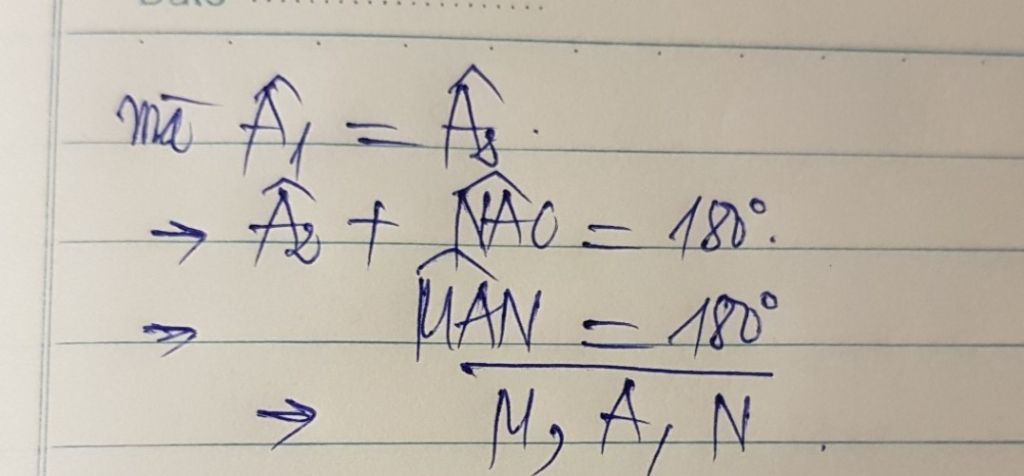 mà Â₁ = Â₃.
→ Â₂ + N̂AO = 180°.
⇒ M̂AN = 180°
→ M, A, N .